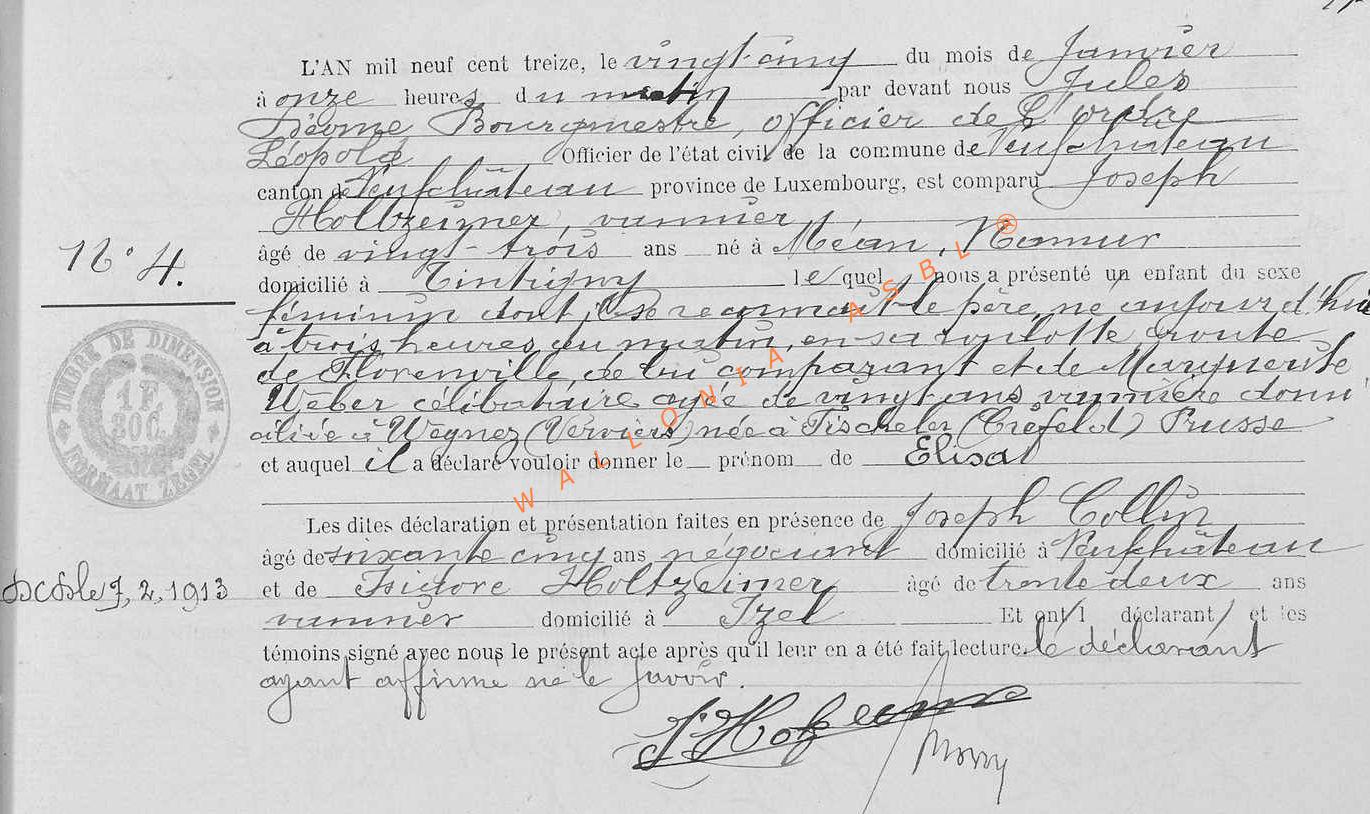 L'AN mil neuf cent treize, le vingt-cinq du mois de Janvier
à onze heures du matin par devant nous Jules
Bourgmestre, officier de L'ordre
Léopold Officier de l'état civil de la commune de Neufchâteau
canton de Neufchâteau province de Luxembourg, est comparu Joseph
Holtzeimer, vannier,
N° 4.
âgé de vingt-trois ans né à Méan, Namur
domicilié à Tintigny lequel nous a présenté un enfant du sexe
féminin dont il se reconnait le père, né aujourd'hui
à trois heures du matin, en sa roulotte route
de Florenville, de lui comparant et de Marguerite
Weber célibataire agée de vingt ans vannière domi
ciliée à Wegnez (Verviers) née à Fischeler (Créfeld) Prusse
et auquel il a déclaré vouloir donner le prénom de Elisa
TIMBRE DE DIMENSION
1 F.
80 C.
FORMAAT ZEGEL
WALLONIA ASBL ®
Les dites déclaration et présentation faites en présence de Joseph Collin
âgé de soixante cinq ans négociant domicilié à Neufchâteau
et de Isidore Holtzeimer âgé de trente deux ans
7, 2, 1913
vannier domicilié à Izel Et ont l déclarant et les
témoins signé avec nous le présent acte après qu'il leur en a été fait lecture. le déclarant
ayant affirmé ne le savoir.